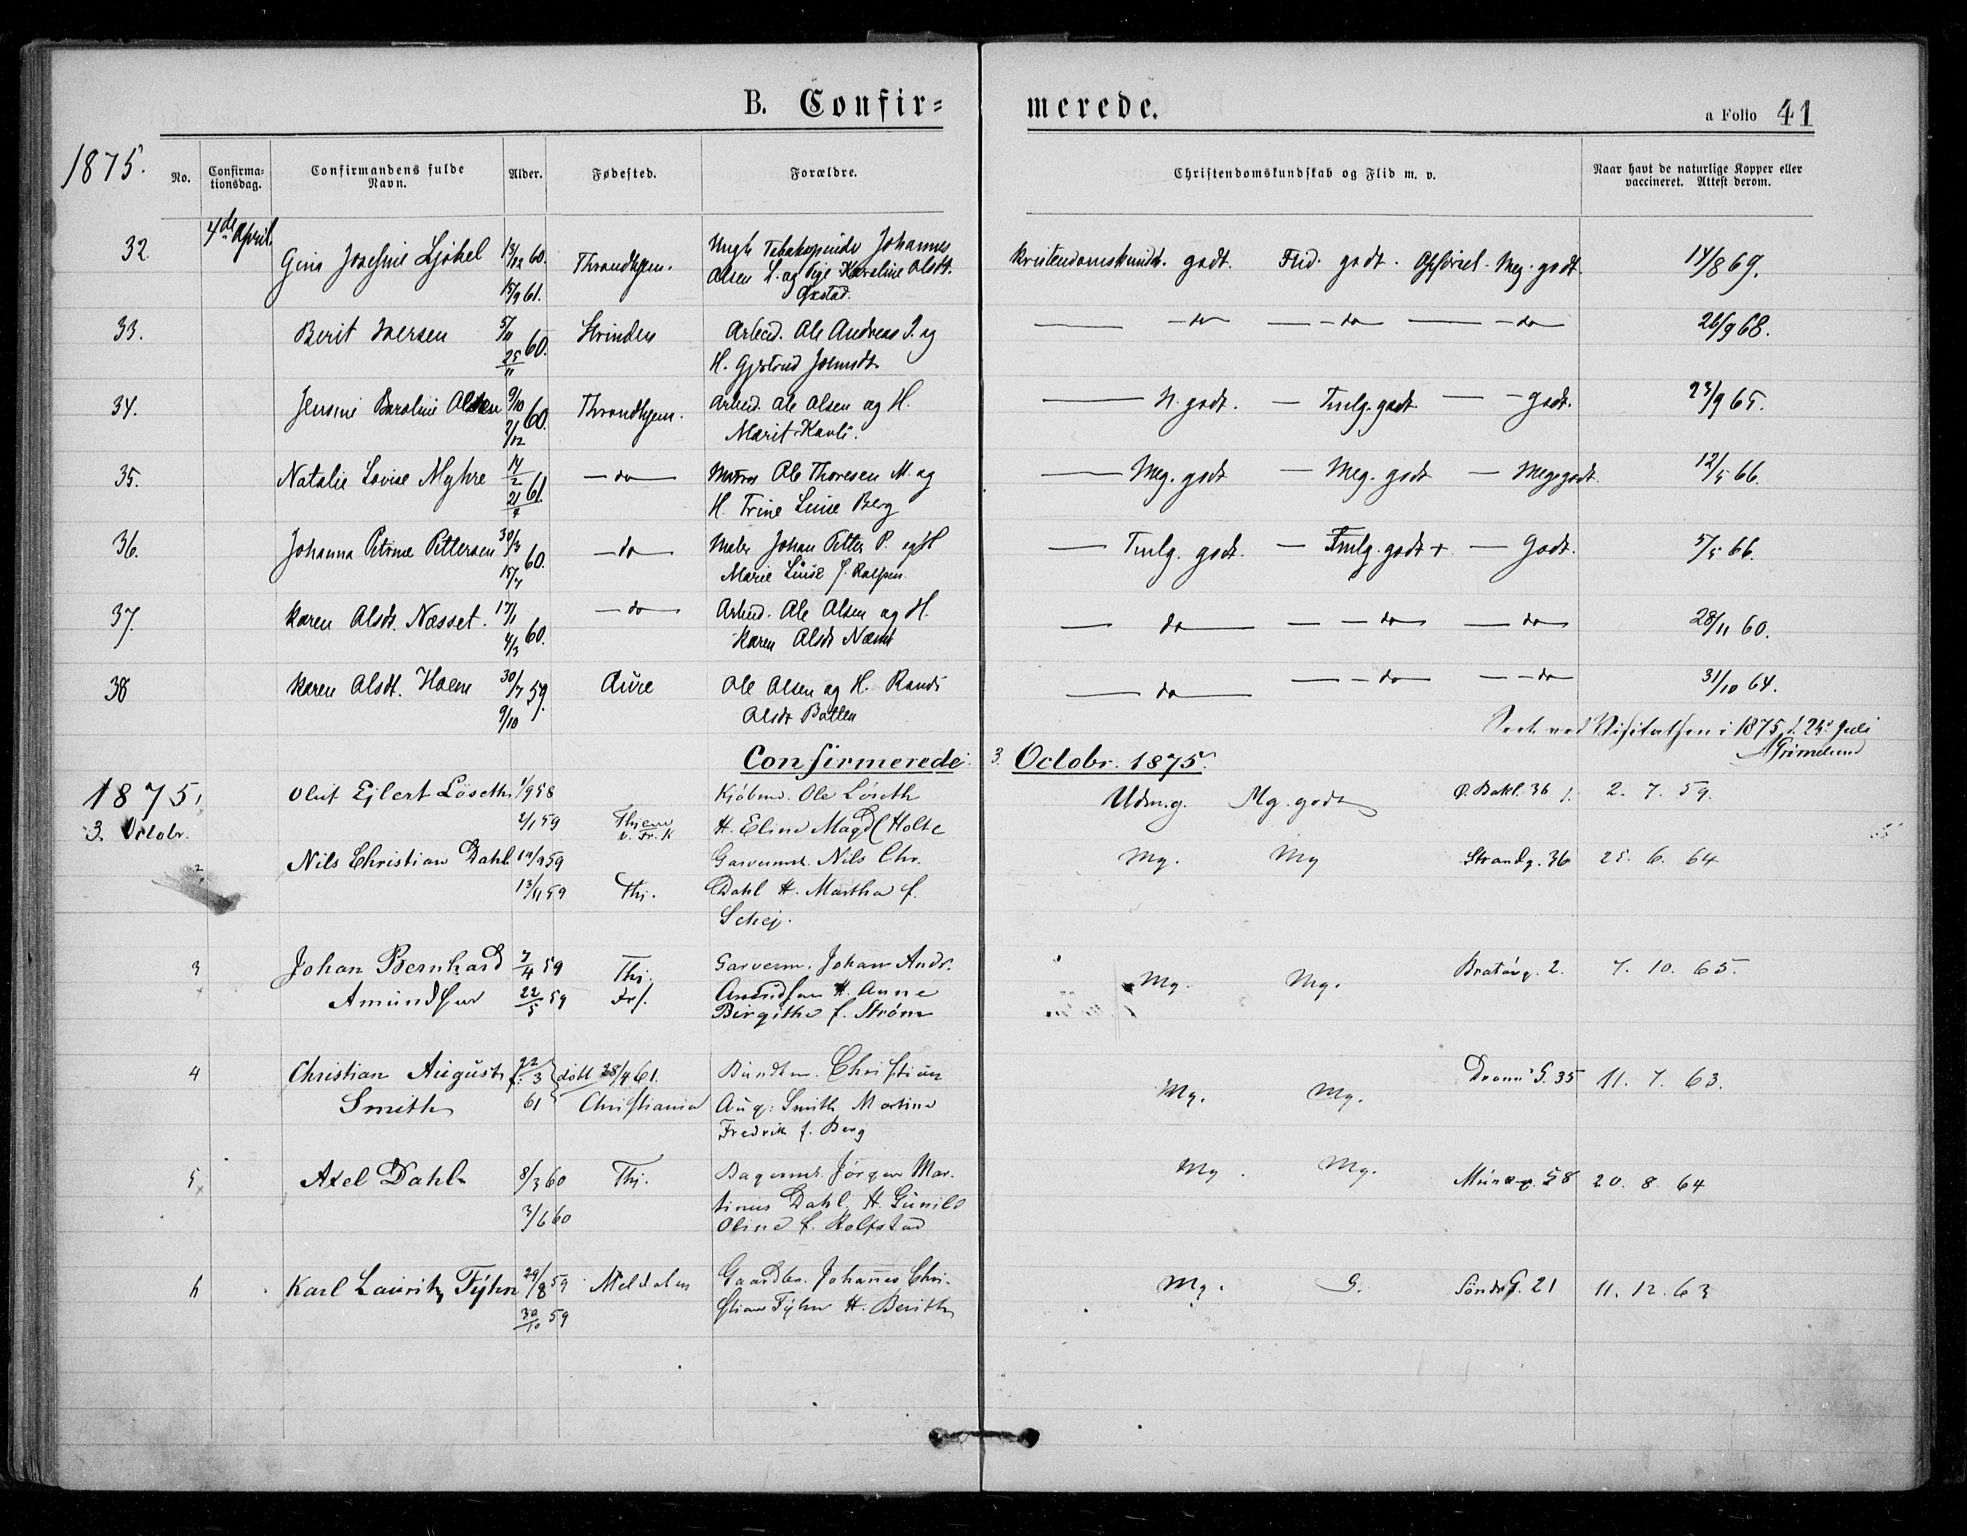 B. Confir=
merede.
a Folio 41
1875.
No.
Confirma-
tionsdag.
Confirmandens fulde
Navn.
Alder.
Fødested.
Forældre.
Christendomskundskab og Flid m. v.
Naar havt de naturlige Kopper eller
vaccineret. Attest derom.
4de April.
32. Gina Josefine Ljøkel 13/12 60. Throndhjem. Johannes
15/9 61. Olsen L. og Pige Karoline Olsdt.
Kristendomskundsk. godt. Flid. godt. Opførsel. Meg. godt. 14/8 69.
33. Berit Iversen 5/11 60. Strinden Arbeid. Ole Andreas I. og
25/11 H. Gjertrud Johnsdt.
— do — do — do 26/9 68.
34. Jensine Olsen 9/10 60. Throndhjem. Arbeid. Ole Olsen og H.
2/12 Marit
— N. godt. — Tmlg. godt. — godt. 23/9 65.
35. Natalie Lovise Myhre 14/2 61. — do — Ole Thoresen M. og
H. Trine Berg
— Meg. godt — Meg. godt — Meget godt. 12/5 66.
36. Johanna Petrine Pettersen 30/3 60. — do — Maler Johan Petter P. og H
15/7 Marie f.
— Tmlg. godt. — Tmlg. godt + — Godt. 5/5 66.
37. Karen Olsdt. Næsset. 17/1 60. — do — Arbeid. Ole Olsen og H.
4/3 Karen Olsdt
— do — — do — — do — 28/11 60.
38 Karen Olsdt. 30/7 59. Aure Ole Olsen og H. Randi
9/10 Olsdt
— do — — do — — do 31/10 64.
Seet ved Visitatsen i 1875 d. 25. Juli
Grimelund
Confirmerede 3. Octobr. 1875.
1875
3. Octobr.
1 Oluf Ejlert Löseth 1/9 58 Kjöbmd. Ole Löseth
2/1 59 v. Fr. K H. Eline Magd. Holte
Udm. g. Mg. godt Ø. Bakl. 36 2. 7. 59.
2 Nils Christian Dahl 59 Garvermd. Nils Chr.
13/11 59 Thj. Dahl H. Martha f.
Schej.
Mg. Mg Strandg. 36 25. 6. 64
3 Johan Bernhard 7/4 59 Thj. Garverm. Johan Andr.
Amundsen 22/5 59 Frf. Amundsen H. Anne
Birgitha f. Ström
Mg. Mg. Bratörg. 2. 7. 10. 65.
4 Christian August 22/3 döbt 28/4 61. Bundtm. Christian
Smith 61 Christiania Aug. Smith Martine
Fredrik f. Berg
Mg. Mg. Dronn. G. 35 11. 7. 63.
5 Axel Dahl 8/3 60 Thj. Bagermd. Jörgen Mar-
3/6 60 tinus Dahl, H. Gunild
Oline f. Rolfstad
Mg. Mg. Munkeg. 58 20. 8 64
6 Karl Lauritz Fÿhn 29/8 59 Meldalen Gaardbr. Johannes Chri-
30/10 59 stian Fÿhn H. Berith
Mg. G. Söndr G. 21 11. 12. 63